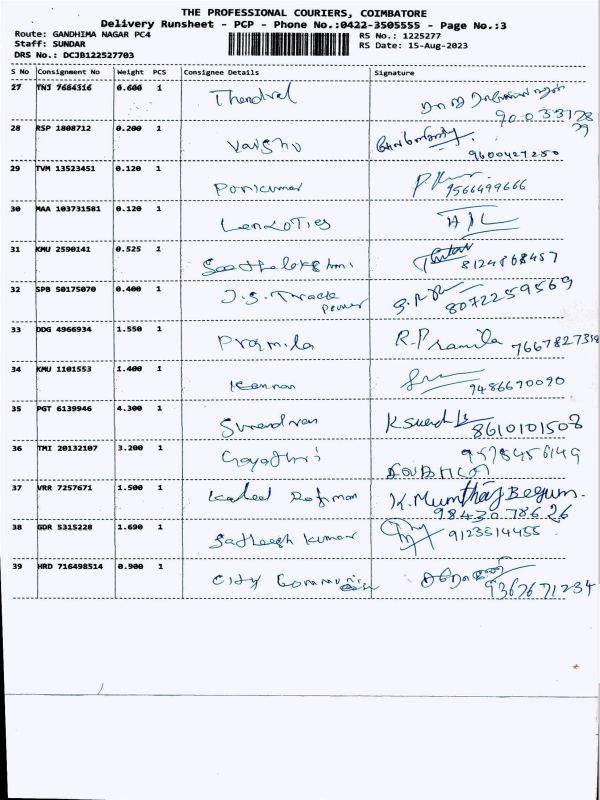 THE PROFESSIONAL COURIERS, COIMBATORE
Delivery Runsheet - PCP - Phone No.:0422-3505555 - Page No.:3
Route: GANDHIMA NAGAR PC4 RS No.: 1225277
Staff: SUNDAR RS Date: 15-Aug-2023
DRS No.: DCJB122527703
S No Consignment No Weight PCS Consignee Details Signature
27 TNJ 7684316 0.600 1 Thendral
90033128
29
28 RSP 1808712 0.200 1 Vaishu
9600427250
29 TVM 13523451 0.120 1 Ponkumar
9566499666
30 MAA 103731581 0.120 1
31 KMU 2590141 0.525 1
8124868457
32 SPB 50175070 0.400 1 J.S. Trade
Power
8072259569
33 DDG 4966934 1.550 1 Pramila R. Pramila 7667827358
34 KMU 1101553 1.400 1 Kannan
9486670090
35 PGT 6139946 4.300 1 Surendran
8610101508
36 TMI 20132107 3.200 1 Gayathri 9578456149
37 VRR 7257671 1.500 1 Kaleel Rahman K. Mumthaj Begum.
98430 78626
38 GDR 5315228 1.690 1 Satheesh Kumar 9123514455
39 HRD 716498514 0.900 1 City
9362671234